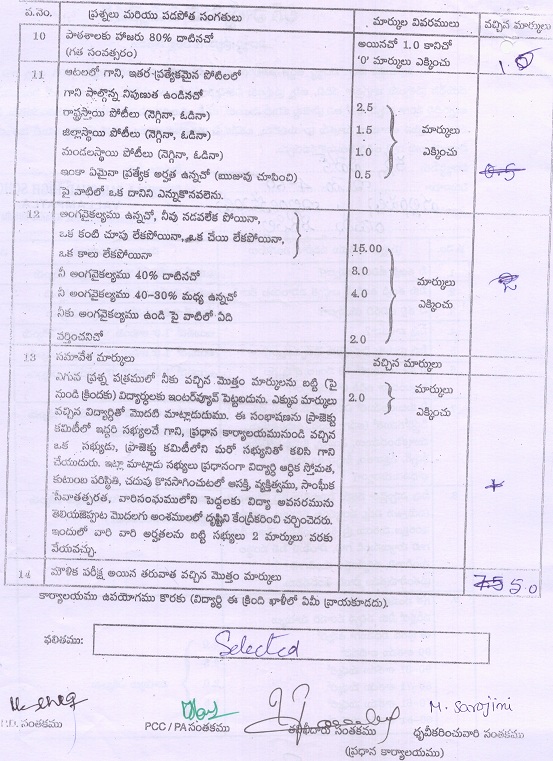 వ.నెం. ప్రశ్నలు మరియు పడపోత సంగతులు మార్కుల వివరములు వచ్చిన మార్కులు
10 పాఠశాలకు హాజరు 80% దాటినచో అయినచో 1.0 కానిచో
(గత సంవత్సరం) '0' మార్కులు ఎక్కించు 1.0
11 ఆటలలో గాని, ఇతర ప్రత్యేకమైన పోటీలలో
గాని పాల్గొన్న నిపుణుత ఉండినచో
రాష్ట్రస్థాయి పోటీలు (నెగ్గినా, ఓడినా) 2.5
జిల్లాస్థాయి పోటీలు (నెగ్గినా, ఓడినా) 1.5 మార్కులు
మండలస్థాయి పోటీలు (నెగ్గినా, ఓడినా) 1.0 ఎక్కించు
ఇంకా ఏమైనా ప్రత్యేక అర్హత ఉన్నచో (ఋజువు చూపించి) 0.5 0.5
పై వాటిలో ఒక దానిని ఎన్నుకొనవలెను.
12 అంగవైకల్యము ఉన్నచో, నీవు నడవలేక పోయినా,
ఒక కంటి చూపు లేకపోయినా, ఒక చేయి లేకపోయినా,
ఒక కాలు లేకపోయినా 15.00
నీ అంగవైకల్యము 40% దాటినచో 8.0 మార్కులు
నీ అంగవైకల్యము 40-30% మధ్య ఉన్నచో 4.0 ఎక్కించు
నీకు అంగవైకల్యము ఉండి పై వాటిలో ఏది
వర్తించనిచో 2.0
13 సమావేశ మార్కులు వచ్చిన మార్కులు
ఎగువ ప్రశ్న పత్రములో నీకు వచ్చిన మొత్తం మార్కులను బట్టి (పై 2.0 మార్కులు
నుండి క్రిందకు) విద్యార్థులకు ఇంటర్వ్యూవ్ పెట్టబడును. ఎక్కువ మార్కులు ఎక్కించు
వచ్చిన విద్యార్థితో మొదటి మాట్లాడుదుము. ఈ సంభాషణను ప్రాజెక్టు
కమిటీలో ఇద్దరి సభ్యులచే గాని, ప్రధాన కార్యాలయమునుండి వచ్చిన
ఒక సభ్యుడు, ప్రాజెక్టు కమిటీలోని మరో సభ్యునితో కలిసి గాని
చేయుదురు. ఇట్లా మాట్లాడు సభ్యులు ప్రధానంగా విద్యార్థి ఆర్థిక స్తోమత,
కుటుంబ పరిస్థితి, చదువు కొనసాగించుటలో ఆసక్తి, వ్యక్తిత్వము, సాంఘీక
సేవాతత్పరత, వారిసంఘములోని పెద్దలకు విద్యా అవసరమును
తెలియజెప్పుట మొదలగు అంశములలో దృష్టిని కేంద్రీకరించి చర్చించెదరు.
ఇందులో వారి వారి అర్హతలను బట్టి సభ్యులు 2 మార్కులు వరకు
వేయవచ్చు.
14 మౌళిక పరీక్ష అయిన తరువాత వచ్చిన మొత్తం మార్కులు 5.0
కార్యాలయము ఉపయోగము కొరకు (విద్యార్థి ఈ క్రింది ఖాళీలో ఏమీ వ్రాయకూడదు).
ఫలితము: Selected
M. Sarojini
P.D. సంతకము PCC / PA సంతకము సంతకము ధృవీకరించువారి సంతకము
(ప్రధాన కార్యాలయము)